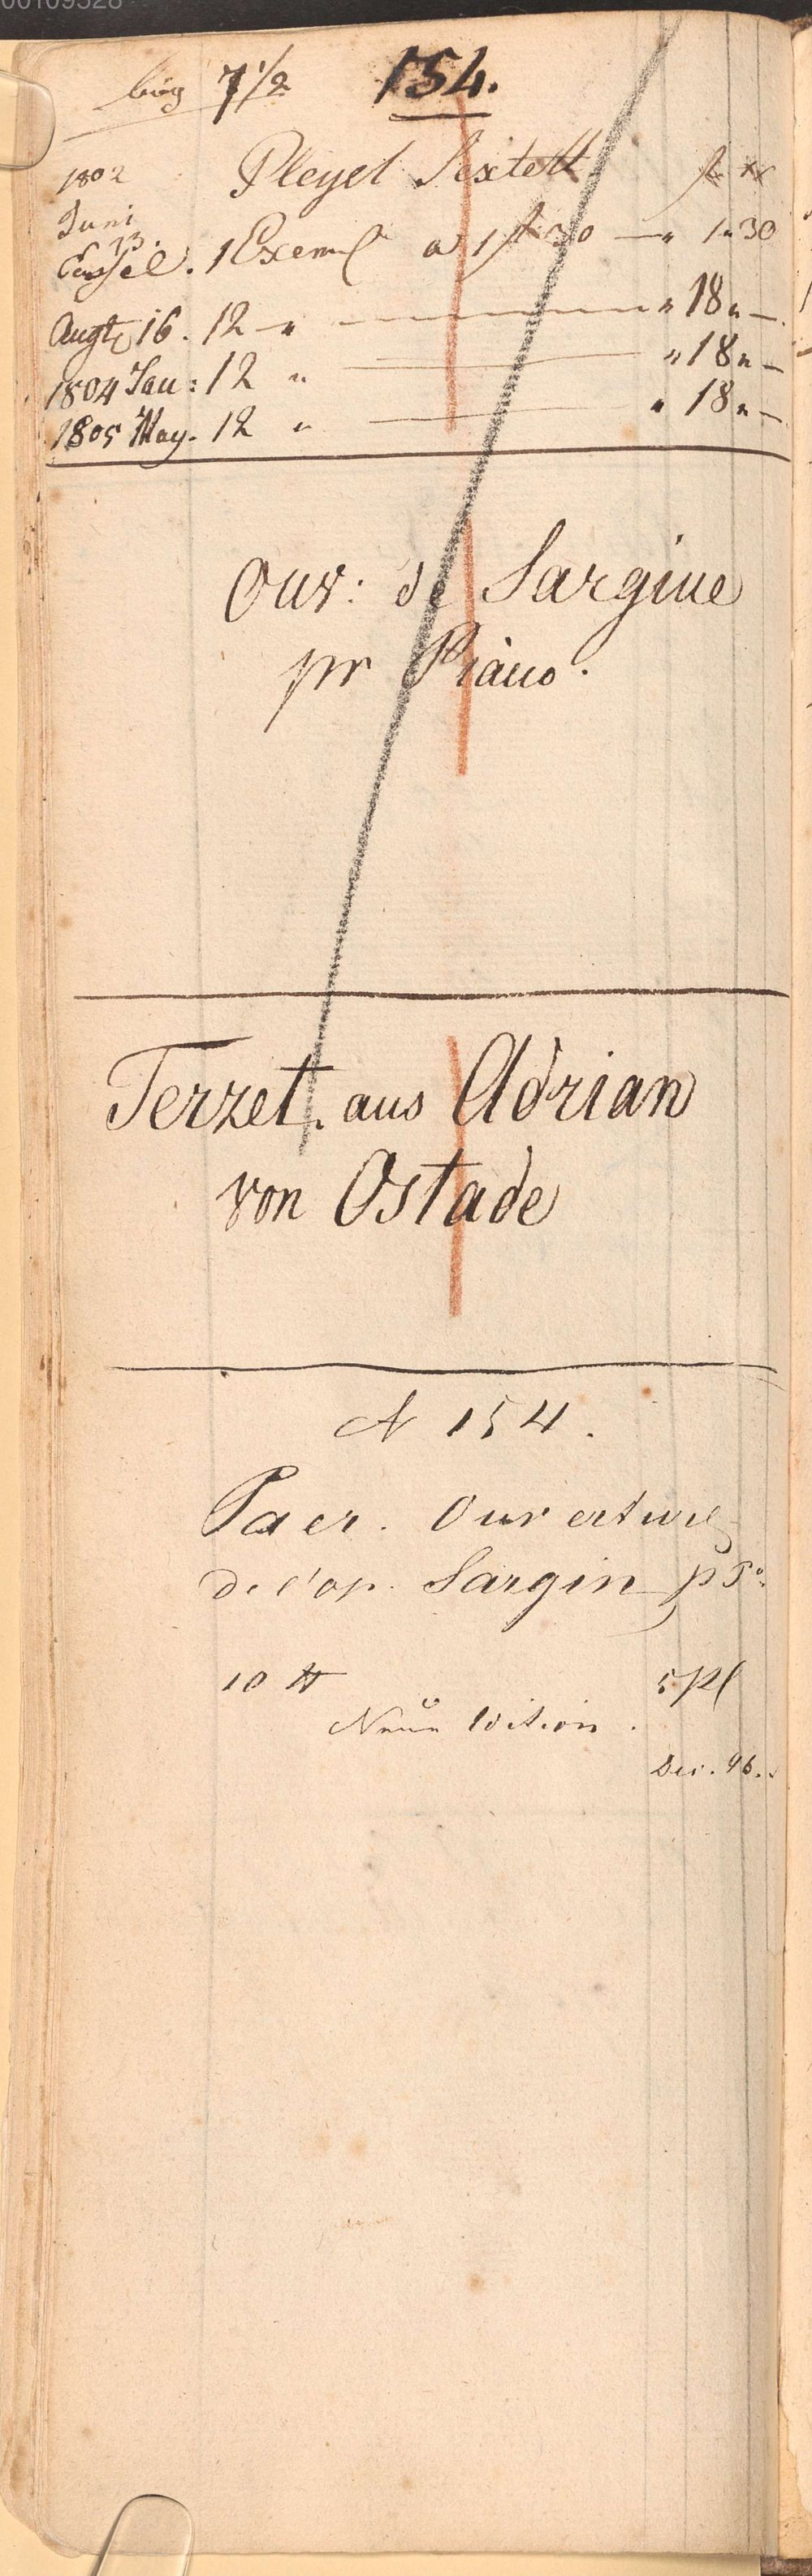 00109528
bog 7 1/2 154.
1802 Pleyel Sextett. fl xr
Juni
13.
Cassel. 1 Exempl a 1 fl 30 — " 1 " 30
Augt 16. 12 " — " 18 " —
1804 Jan: 12 " — " 18 " —
1805 May. 12 " — " 18 " —
Ouv: de Sargine
pr Piano.
Terzet. aus Adrian
von Ostade
N 154.
Paer. Ouverture
de l'op. Sargin p Po.
10 5 Pl
Neue Edition.
Dec. 46.